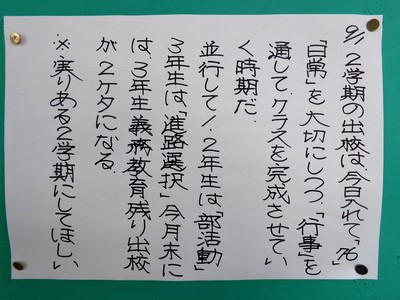 9/1 2学期の出校は、今日入れて「76」
「日常」を大切にしつつ、「行事」を
通して、クラスを完成させてい
く時期だ.
並行して1.2年生は「部活動」
3年生は、「進路選択」今月末に
は、3年生義務教育残り出校
が2ケタになる.
※実りある2学期にしてほしい